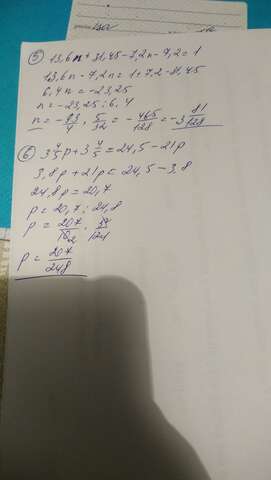 5) 13,6n + 31,45 - 7,2n - 7,2 = 1
13,6n - 7,2n = 1 + 7,2 - 31,45
6,4n = -23,25
n = -23,25 : 6,4
n = -93/4 · 5/32 = -465/128 = -3 81/128
6) 3 4/5 p + 3 4/5 = 24,5 - 21p
3,8p + 21p = 24,5 - 3,8
24,8p = 20,7
p = 20,7 : 24,8
p = 207/10 ·
p = 207/248